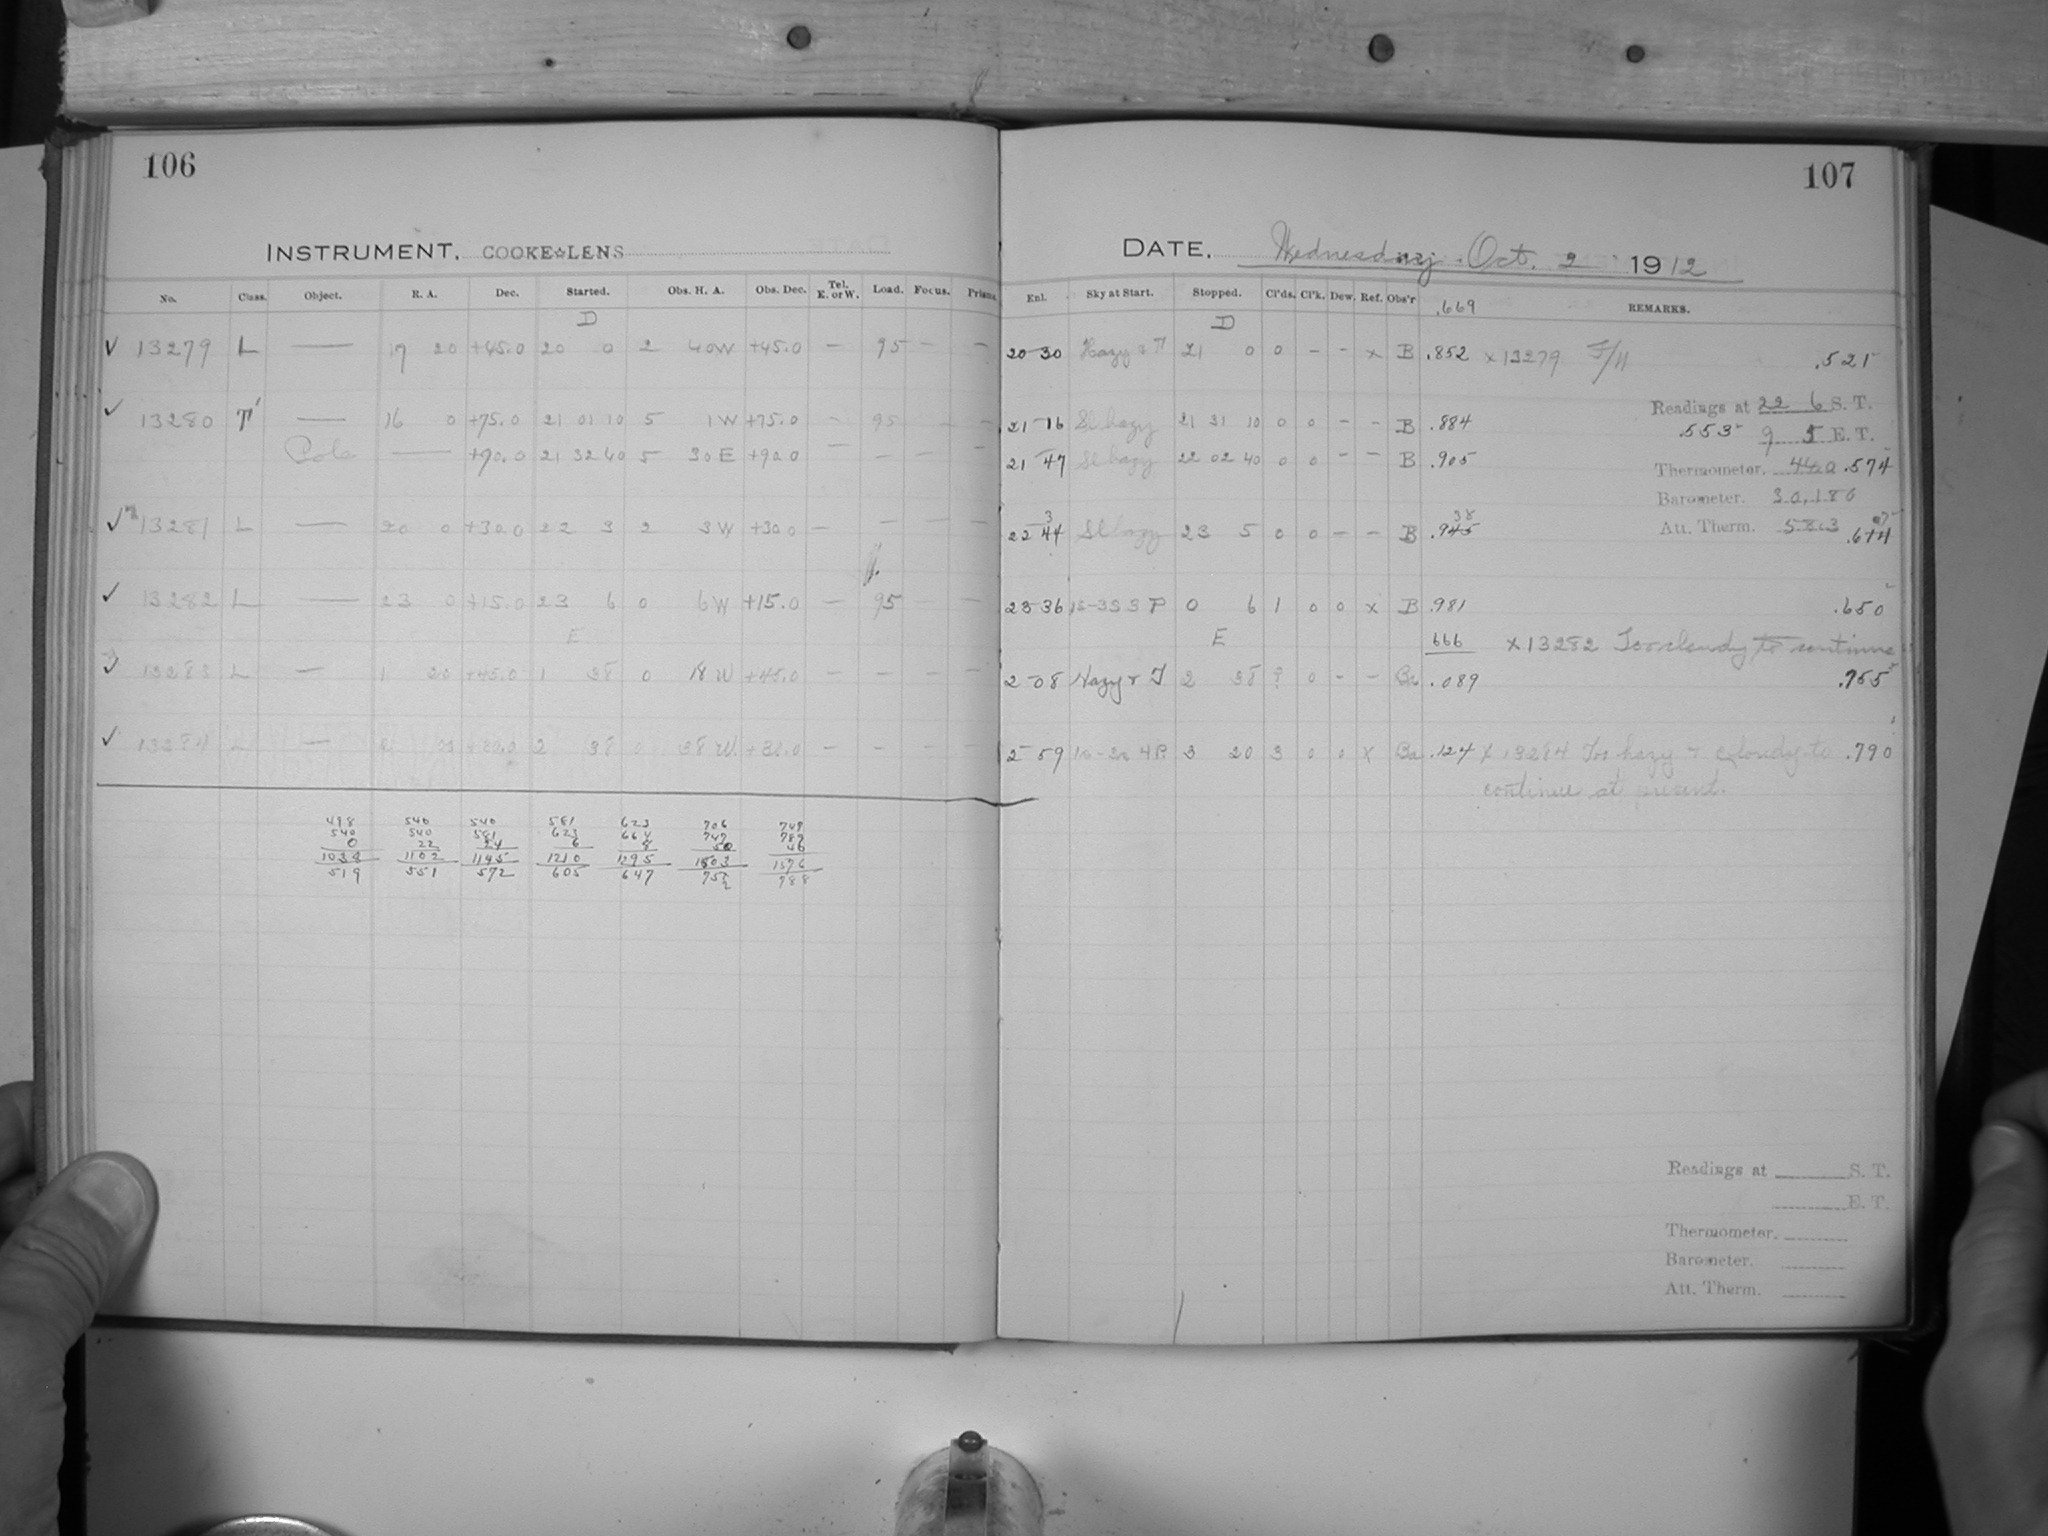 106
INSTRUMENT. COOKE☆LENS
No. Class. Object. R. A. Dec. Started. Obs. H. A. Obs. Dec. Tel. E. or W. Load. Focus. Prisms.
D
✓ 13279 L — 17 20 +45.0 20 0 2 40W +45.0 — 95 — —
✓ 13280 — 16 0 +75.0 21 01 10 5 1W +75.0 — 95 — —
Pole — +90.0 21 32 40 5 30E +90.0 — — — —
✓ 13281 L — 20 0 +30.0 22 3 2 3W +30.0 — — — —
✓ 13282 L — 23 0 +15.0 23 6 0 6W +15.0 — 95 — —
E
✓ 13283 L — 1 20 +45.0 1 38 0 18W +45.0 — — — —
✓ 13284 L — 2 38 0 38W. — — — —
498 540 540 581 623 706 749
540 540 581 623 664 747
0 22 24 6 8 50 46
1038 1102 1145 1210 1295 1503 1576
519 551 572 605 647 788
107
DATE. Wednesday. Oct. 2 1912
Enl. Sky at Start. Stopped. Cl'ds. Cl'k. Dew. Ref. Obs'r .669 REMARKS.
D
20 30 Hazy 21 0 0 – – x B .852 x13279 F/H .521
21 16 Sl hazy 21 31 10 0 0 – – B .884
Readings at 22 6 S. T.
.553 9 5 E. T.
21 47 Sl hazy 22 02 40 0 0 – – B .905
Thermometer. 44.0 .574
Barometer. 30.186
3 38
22 44 Sl hazy 23 5 0 0 – – B .945
Att. Therm. 58.3 .614
23 36 1s-3S 3P 0 6 1 0 0 x B .981 .650
E 666 x13282 Too cloudy to continue
2 08 Hazy & T 2 38 ? 0 – – Ba .089 .755
2 59 4P 3 20 3 0 0 x Ba .124 x 13284 Too hazy & cloudy to .790
continue at present.
Readings at S. T.
E. T.
Thermometer.
Barometer.
Att. Therm.